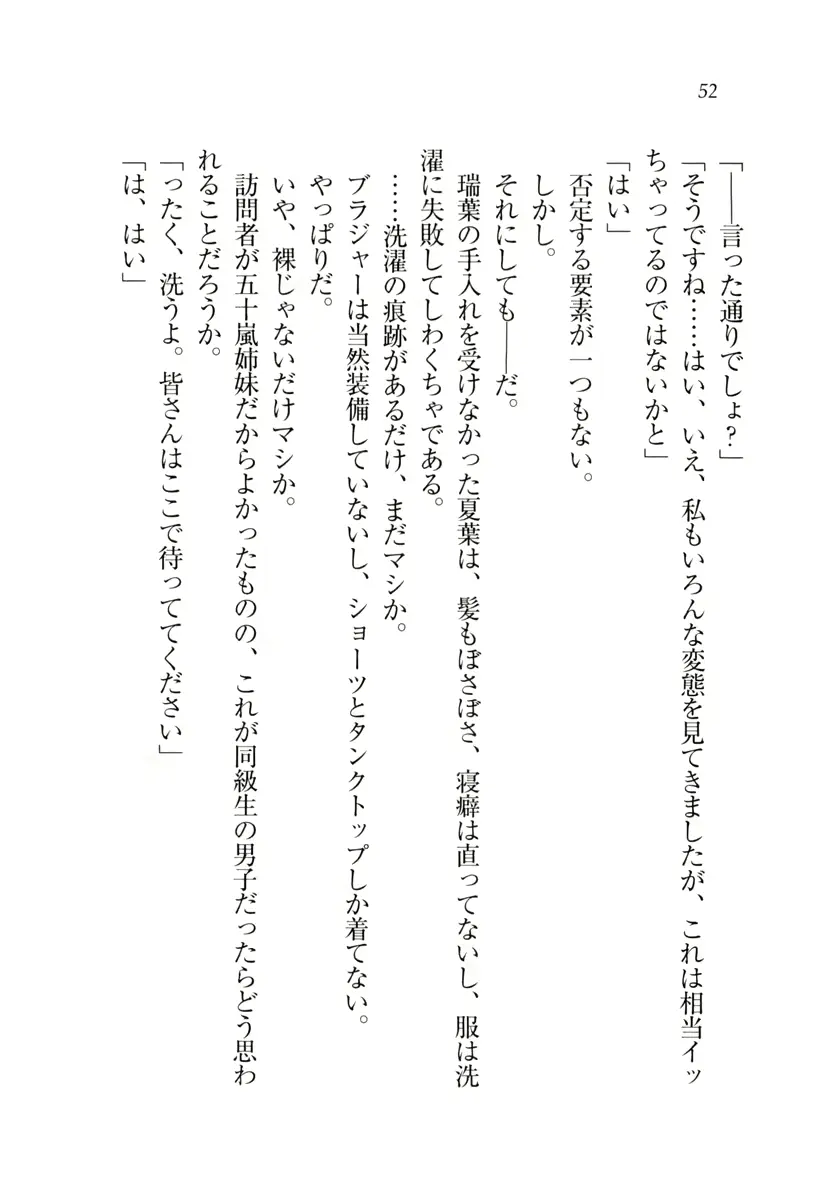 52
「――言った通りでしょ?」
「そうですね……はい、いえ、私もいろんな変態を見てきましたが、これは相当イッ
ちゃってるのではないかと」
「はい」
否定する要素が一つもない。
しかし。
それにしても――だ。
瑞葉の手入れを受けなかった夏葉は、髪もぼさぼさ、寝癖は直ってないし、服は洗
濯に失敗してしわくちゃである。
……洗濯の痕跡があるだけ、まだマシか。
ブラジャーは当然装備していないし、ショーツとタンクトップしか着てない。
やっぱりだ。
いや、裸じゃないだけマシか。
訪問者が五十嵐姉妹だからよかったものの、これが同級生の男子だったらどう思わ
れることだろうか。
「ったく、洗うよ。皆さんはここで待っててください」
「は、はい」